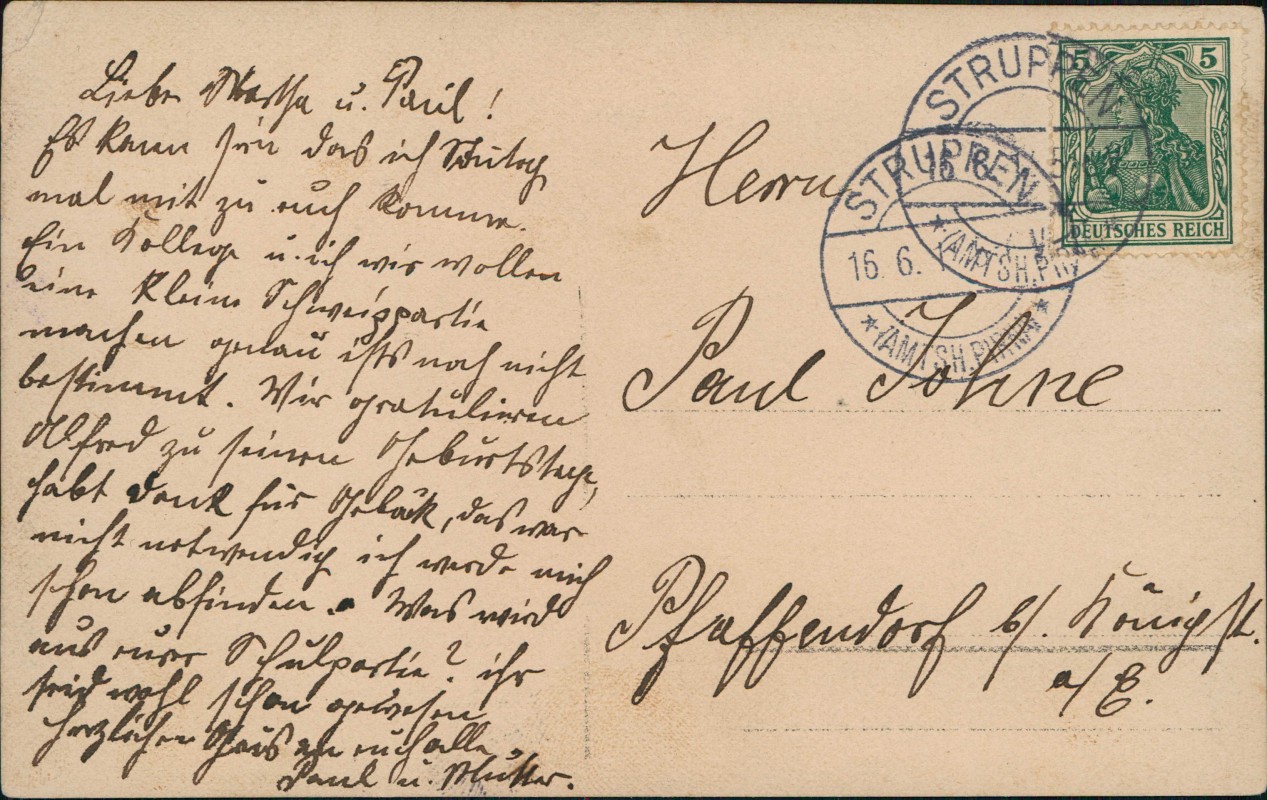 Liebe Martha u. Paul!
Es kann sein das ich Sontag
mal mit zu euch komme.
Ein Kollege u. ich wir wollen
eine kleine Schweizpartie
machen genau ists noch nicht
bestimmt. Wir gratulieren
Alfred zu seinen Geburtstage,
habt Dank für Gebäk, das war
nicht notwendig ich werde mich
schon abfinden. Was wird
aus eurer Schulpartie? ihr
seid wohl schon gewesen
herzlichen Gruss an euch alle.
Paul u. Mutter.
STRUPPEN
16. 6.
* (AMTSH. PIRNA) *
STRUPPEN
16. 6.
* (AMTSH. PIRNA) *
5 5
DEUTSCHES REICH
Herrn
Paul Johne
Pfaffendorf b/. Königst.
a/E.